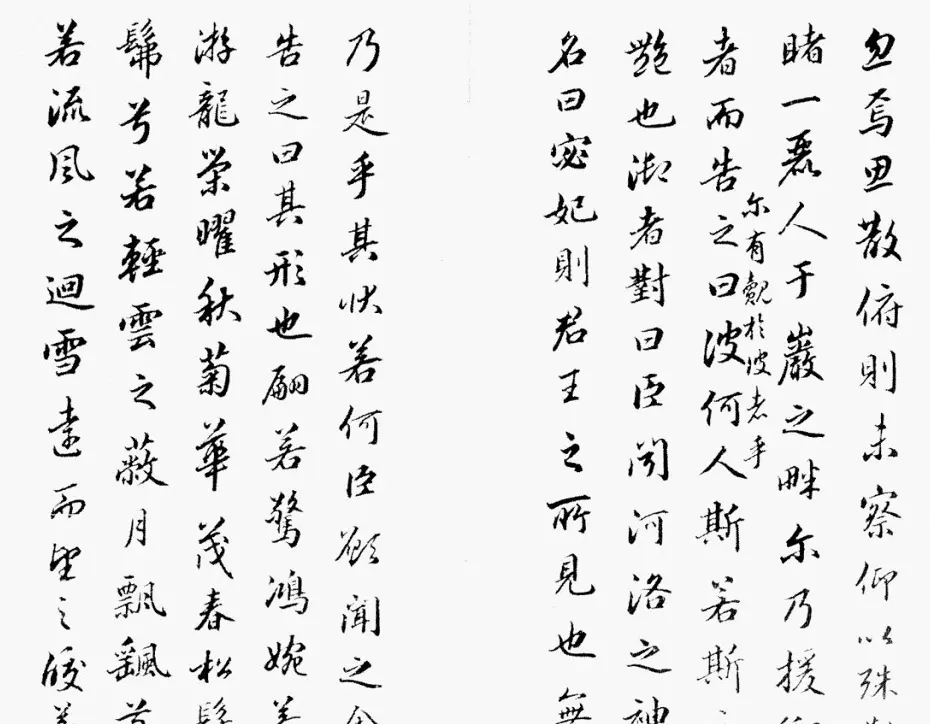 忽焉思散俯則未察仰以殊
睹一麗人于巖之畔尔乃援
尔有覿於彼者乎
者而告之曰彼何人斯若斯
豔也御者對曰臣聞河洛之神
名曰宓妃則君王之所見也無
乃是乎其狀若何臣願聞之余
告之曰其形也翩若驚鴻婉若
游龍榮曜秋菊華茂春松髣
髴兮若輕雲之蔽月飄颻兮
若流風之迴雪遠而望之皎若